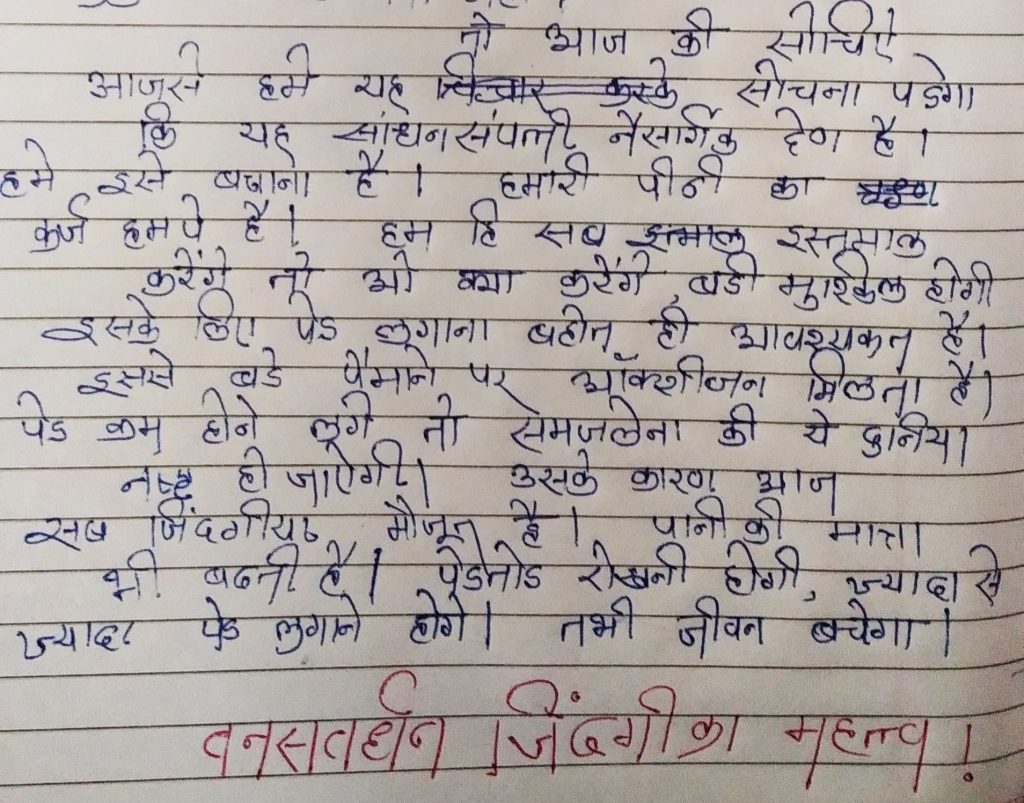 तो आज की सोचिऐ
आजसे हमे यह विचार करके सोचना पडेगा
कि यह सांधनसंपत्ती नैसार्गिक देण है।
हमे इसे बचाना है। हमारी पीढी का
कर्ज हमपे है। हम हि सब इस्तमाल
करेंगे तो ओ क्या करेंगे, बडी मुश्किल होगी
इसके लिए पेड लगाना बहोत ही आवश्यकत है।
इससे बडे पैमाने पर ऑक्शीजन मिलता है।
पेड कम होने लगे तो समजलेना की ये दुनिया
नष्ट हो जाऐगी। उसके कारण आज
सब जिंदगीया मौजूत है। पानी की मात्रा
भी बढती है। पेडतोड रोखनी होगी, ज्यादा से
ज्यादा पेड लगाने होगे। तभी जीवन बचेगा।
वनसवर्धन जिंदगी का महत्त्व!